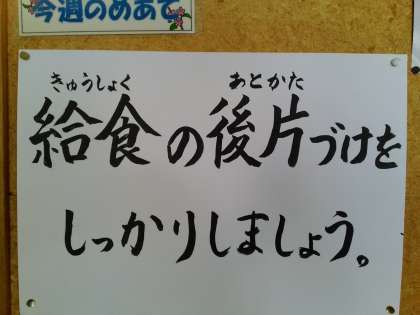 今週のめあて
きゅうしょく あとかた
給食の後片づけを
しっかりしましょう。